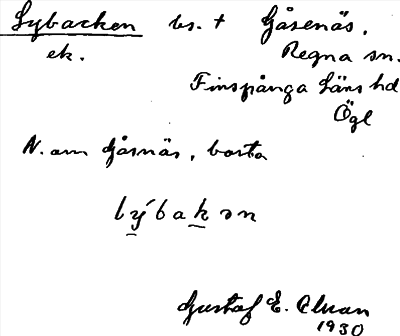 Lybacken bs. + Gåsenäs,
ek. Regna sn.
Finspånga läns hd
Ögl
N. om Gåsnäs, borta
lýbakən
Gustaf E. Alman
1930